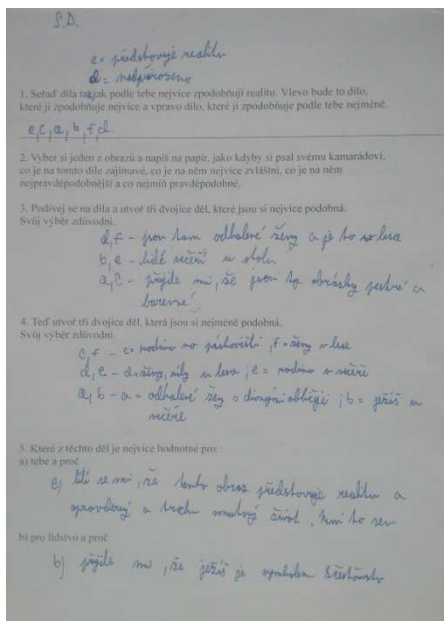 S.D.
e = představuje realitu
d = nadpřirozeno
1. Seřaď díla tak, jak podle tebe nejvíce zpodobňují realitu. Vlevo bude to dílo,
které ji zpodobňuje nejvíce a vpravo dílo, které ji zpodobňuje podle tebe nejméně.
e, c, a, b, f, d
2. Vyber si jeden z obrazů a napiš na papír, jako kdyby si psal svému kamarádovi,
co je na tomto díle zajímavé, co je na něm nejvíce zvláštní, co je na něm
nejpravděpodobnější a co nejmíň pravděpodobné.
3. Podívej se na díla a utvoř tři dvojice děl, které jsou si nejvíce podobná.
Svůj výběr zdůvodni.
d, f - jsou tam odhalené ženy a je to v lese
b, e - lidé večeří u stolu
a, c - přijde mi, že jsou ty obrázky pestré a
barevné
4. Teď utvoř tři dvojice děl, která jsou si nejméně podobná.
Svůj výběr zdůvodni.
c, f - c = rodina na ; f = ženy v lese
d, e - d = ženy, víly v lese ; e = rodina u večeře
a, b - a = odhalené ženy s divnými obličeji ; b = ježíš u
večeře
5. Které z těchto děl je nejvíce hodnotné pro:
a) tebe a proč
e) líbí se mi, že tento obraz představuje realitu a
opravdový a trochu smutný život. Není to sen
b) pro lidstvo a proč
b) přijde mi, že ježíš je symbolem křesťanství